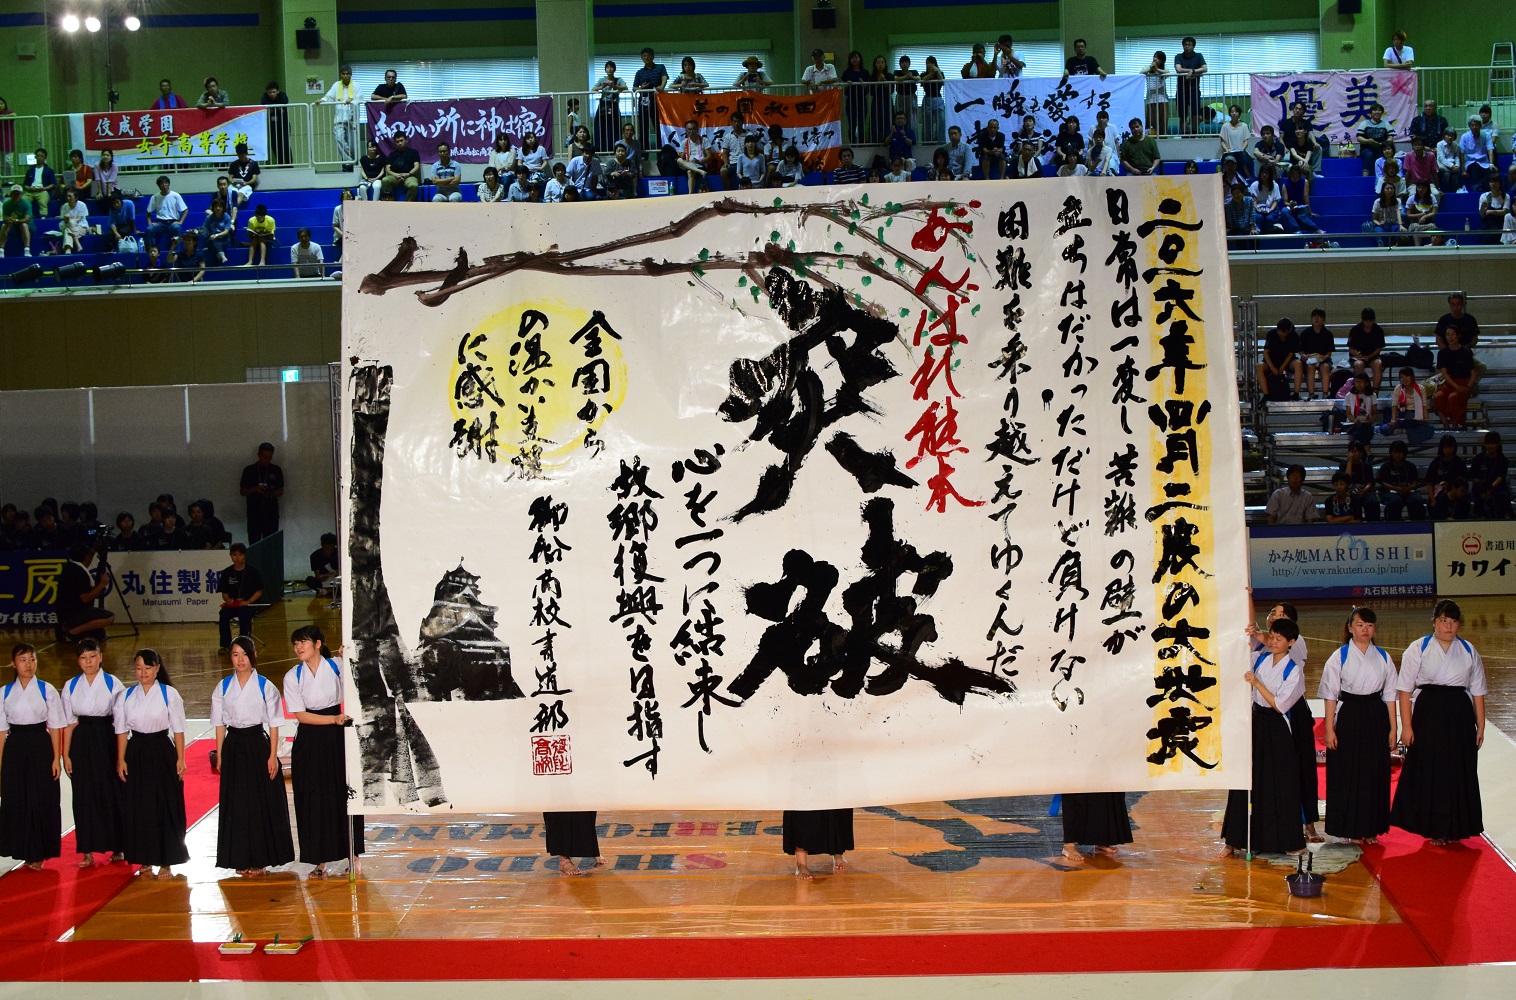 二〇一六年四月二度の大地震
日常は一変し苦難の壁が
立ちはだかっただけど負けない
困難を乗り越えてゆくんだ
がんばれ熊本
突破
心を一つに結束し
故郷復興を目指す
全国から
の温かい支援
に感謝
御船高校書道部
佼成学園
女子高等学校
細かい所に神は宿る
美の国秋田
優美
工房
丸住製紙
Marusumi Paper
かみ処MARUISHI
http://www.rakuten.co.jp/mpf
丸石製紙株式会社
書道用
カワイ
SHODO
PERFORMANC